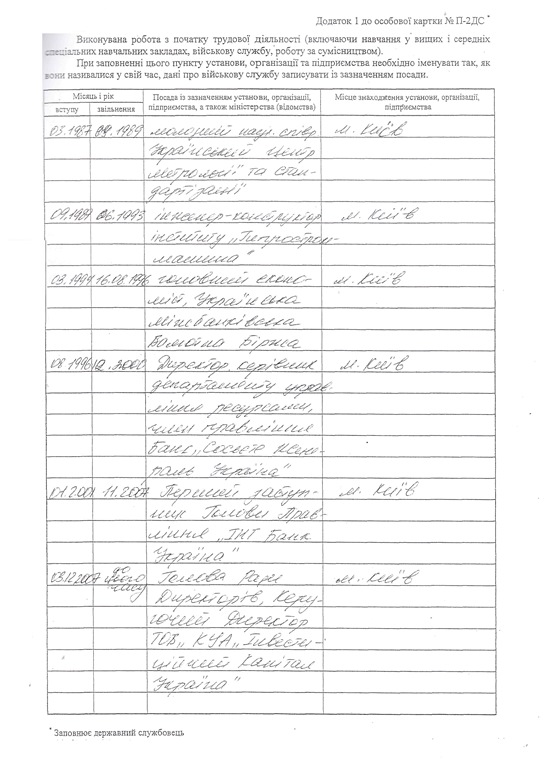 Додаток 1 до особової картки № П-2ДС *
Виконувана робота з початку трудової діяльності (включаючи навчання у вищих і середніх
спеціальних навчальних закладах, військову службу, роботу за сумісництвом).
При заповненні цього пункту установи, організації та підприємства необхідно іменувати так, як
вони називалися у свій час, дані про військову службу записувати із зазначенням посади.
Місяць і рік
вступу звільнення
Посада із зазначенням установи, організації,
підприємства, а також міністерства (відомства)
Місце знаходження установи, організації,
підприємства
03.1987 09.1989 молодший наук. співр. м. Київ
Український Центр
метрології та стан-
дартизації
09.1989 06.1993 інженер-конструктор м. Київ
інституту „Діпростром-
машина"
03.1994 16.08.1996 головний еконо- м. Київ
міст, Українська
міжбанківська
Валютна Біржа
08.1996 12.2000 Директор, керівник м. Київ
департаменту управ-
ління ресурсами,
член правління
Банк „Сосьєте Жене-
раль Україна"
01.2001 11.2007 Перший заступ- м. Київ
ник Голови Прав-
ління „ІНГ Банк
Україна"
03.12.2007 до цього часу Голова Ради м. Київ
Директорів, Керу-
ючий Директор
ТОВ „КУА „Інвести-
ційний Капітал
Україна"
* Заповнює державний службовець